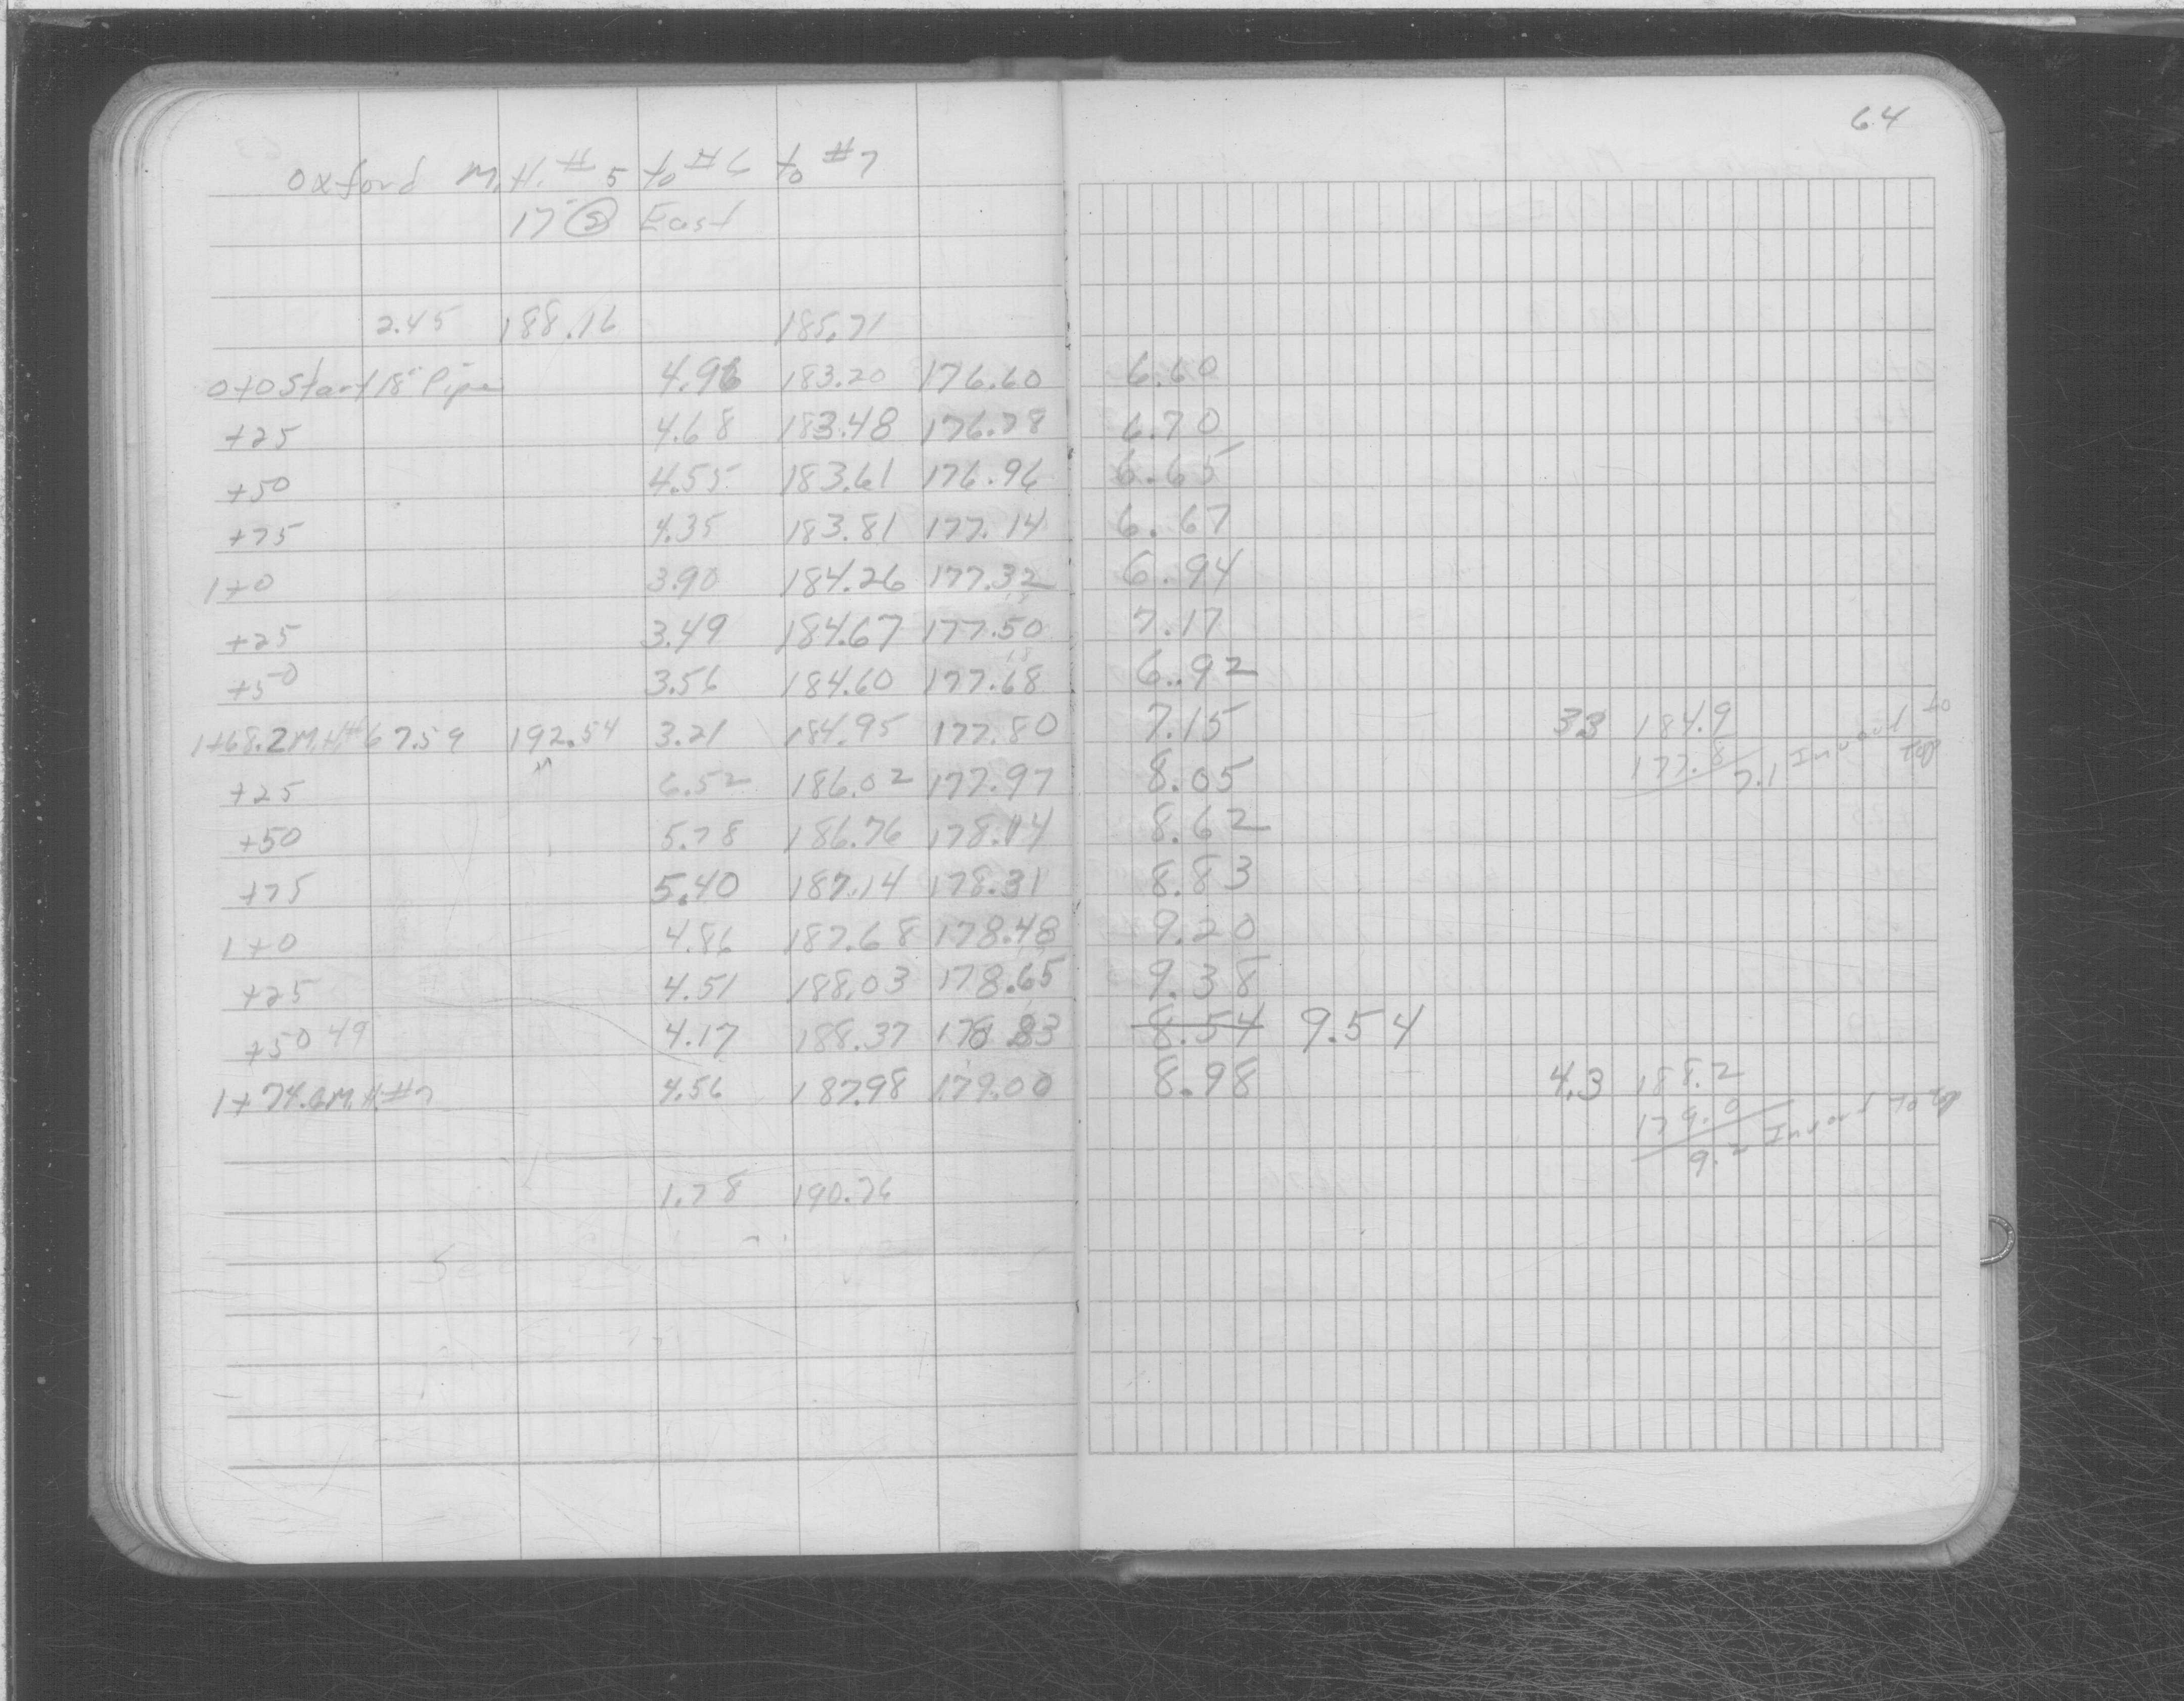 64
Oxford M.H. #5 to #6 to #7
17" East
2.45 188.16 185.71
0+0 Start 18" Pipe 4.96 183.20 176.60 6.60
+25 4.68 183.48 176.78 6.70
+50 4.55 183.61 176.96 6.65
+75 4.35 183.81 177.14 6.67
1+0 3.90 184.26 177.32 6.94
+25 3.49 184.67 177.50 7.17
+50 3.56 184.60 177.68 6.92
1+68.2 M.H.#6 7.59 192.54 3.21 184.95 177.80 7.15 33 184.9
177.8
7.1 Invert to top
+25 6.52 186.02 177.97 8.05
+50 5.78 186.76 178.14 8.62
+75 5.40 187.14 178.31 8.83
1+0 4.86 187.68 178.48 9.20
+25 4.51 188.03 178.65 9.38
+50 49 4.17 188.37 178.83 8.54 9.54
1+74.6 M.H.#7 4.56 187.98 179.00 8.98 4.3 188.2
179.0
9.2 Invert to top
1.78 190.76